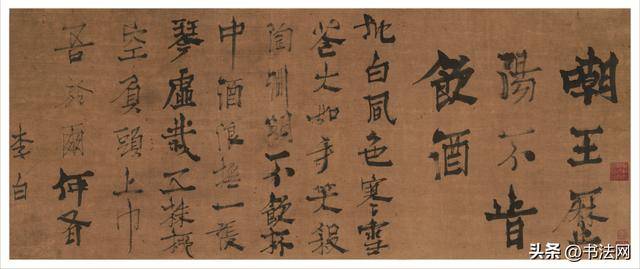 嘲王歷
陽不肯
飲酒
地白風色寒雪
花大如手笑殺
陶淵明不飲杯
中酒浪撫一張
琴虛栽五株柳
空負頭上巾
吾於爾何有
李白
头条 @书法网